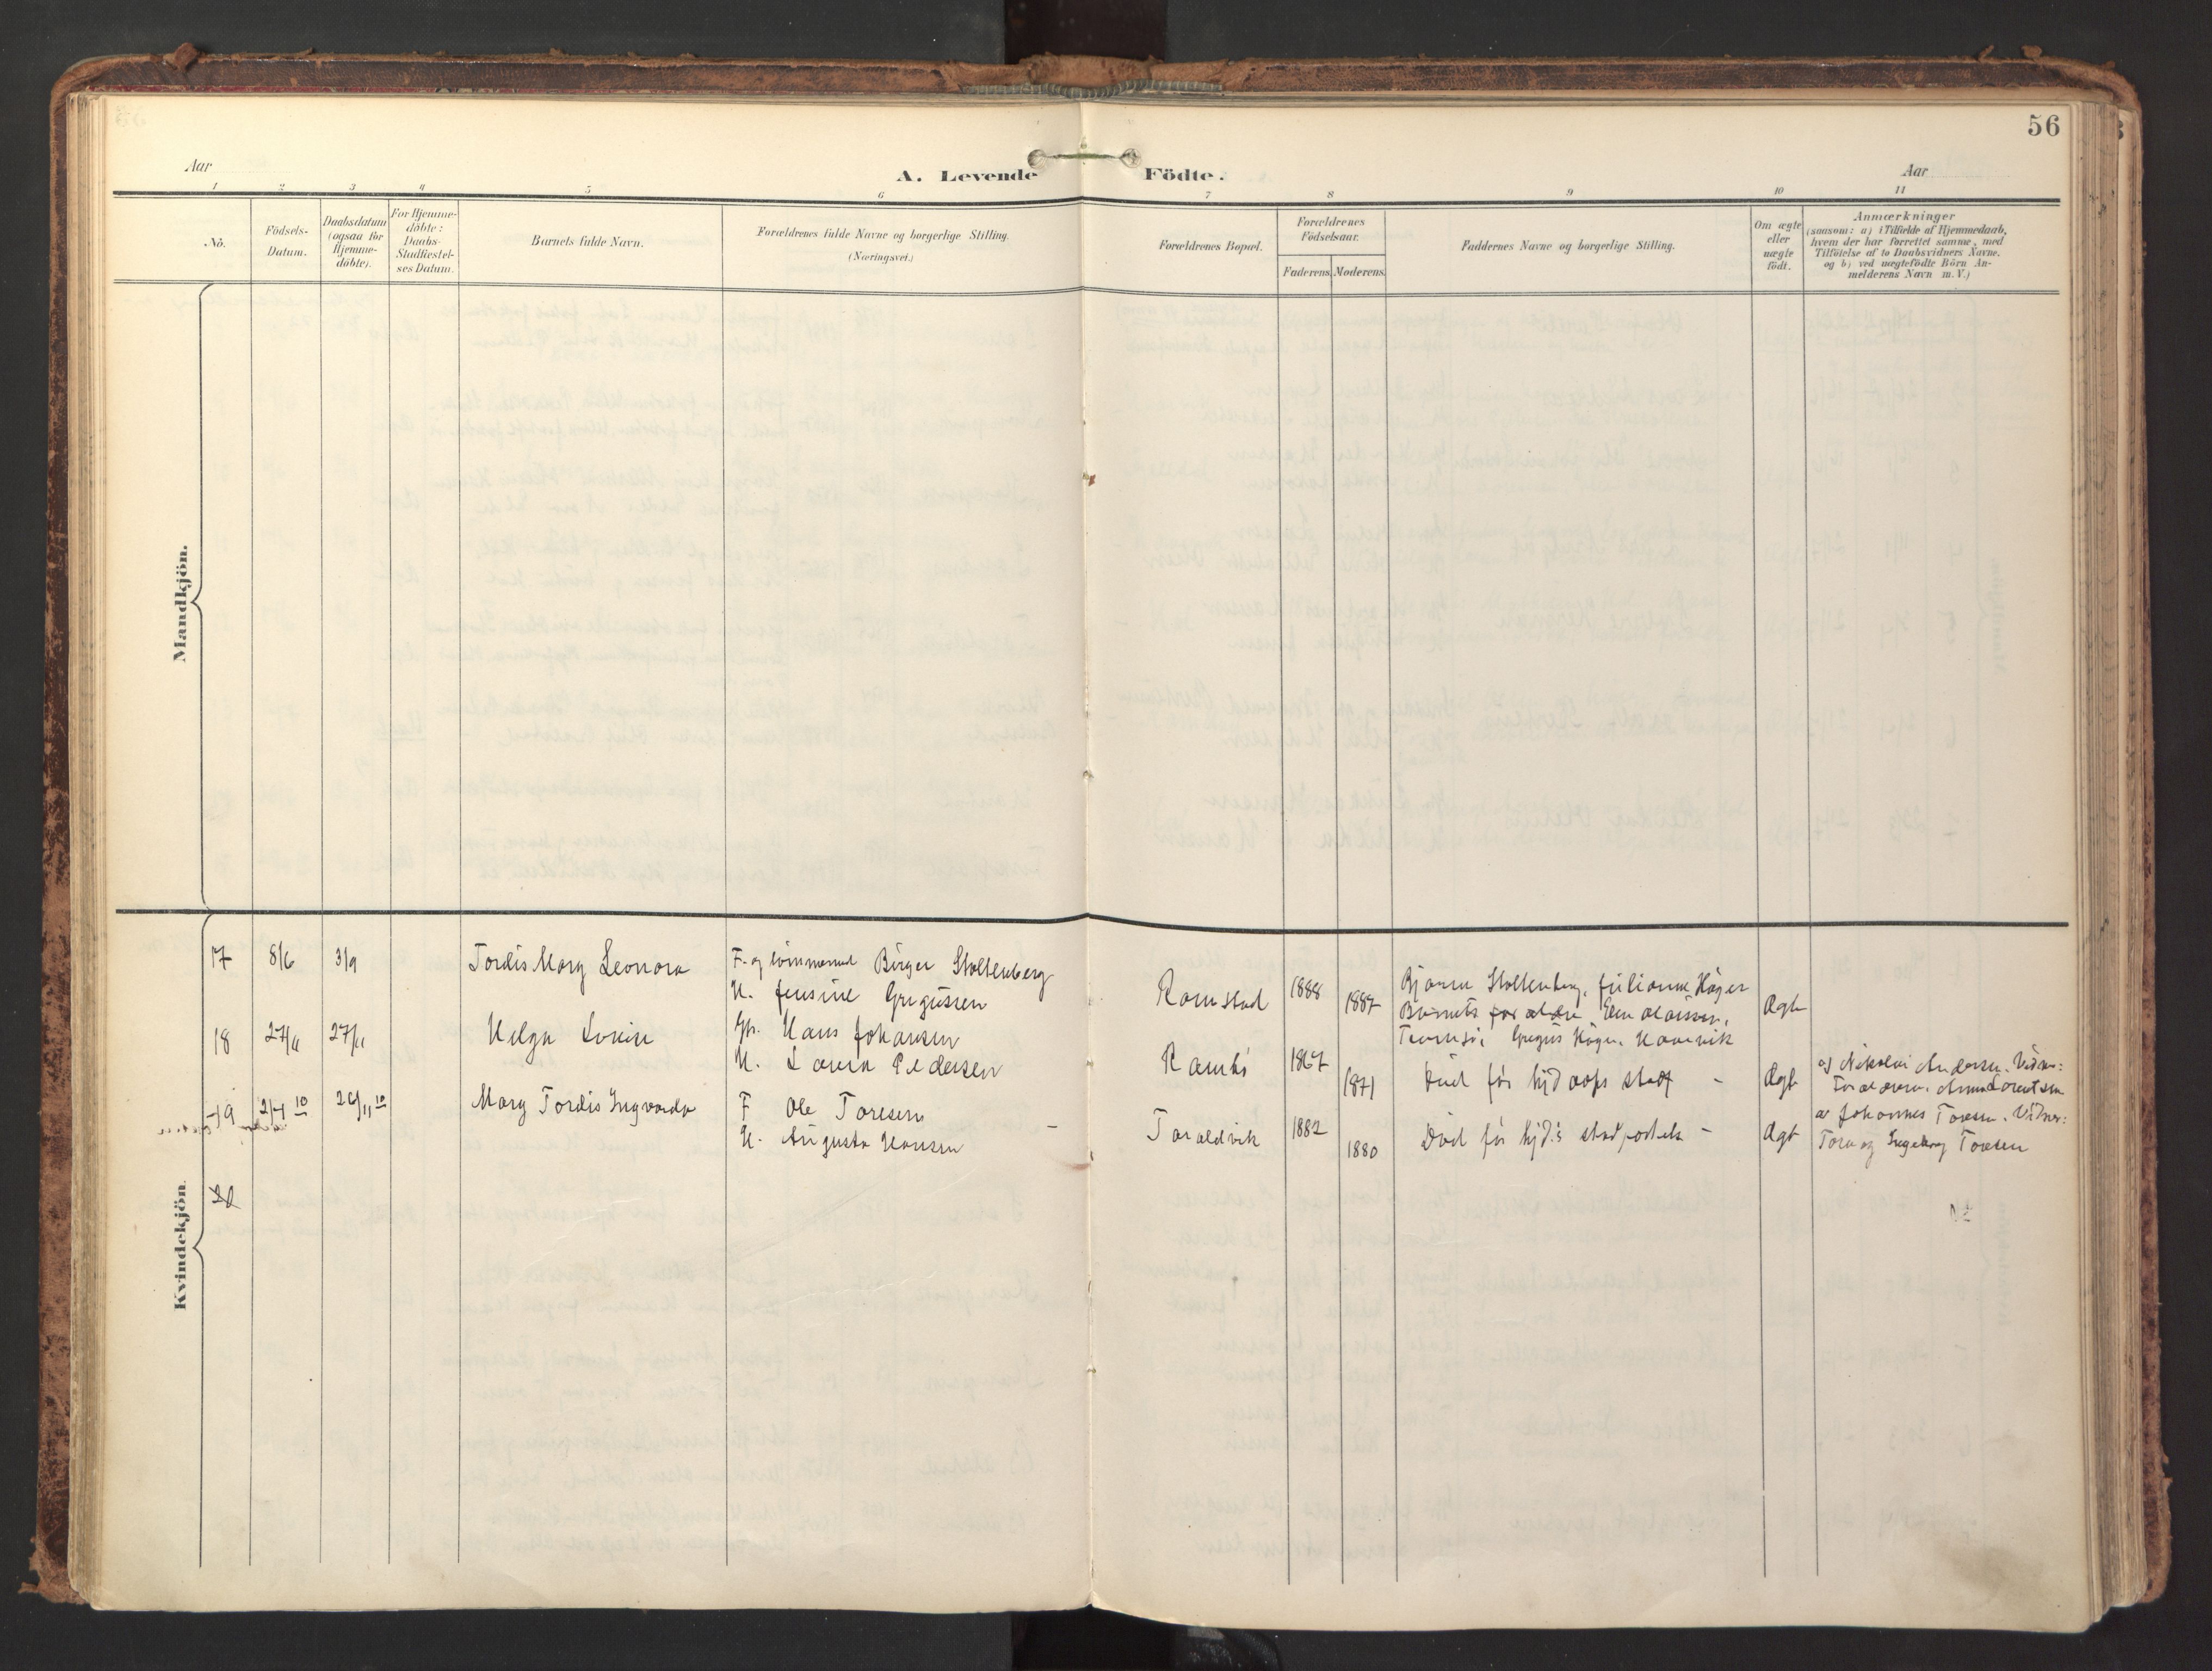 56
Aar
A. Levende Födte.
Aar
1 2 3 4 5 6 7 8 9 10 11
No.
Födsels-
Datum.
Daabsdatum
(ogsaa for
Hjemme-
döbte).
For Hjemme-
döbte:
Daabs-
Stadfæstel-
ses Datum.
Barnets fulde Navn.
Forældrenes fulde Navne og borgerlige Stilling.
(Næringsvei.)
Forældrenes Bopæl.
Forældrenes
Födselsaar.
Faderens. Moderens.
Faddernes Navne og borgerlige Stilling.
Om ægte
eller
uægte
födt.
Anmærkninger
(saasom: a) i Tilfælde af Hjemmedaab,
hvem der har forrettet samme, med
Tilföielse af to Daabsvidners Navne.
og b) ved uægtefödte Börn An-
melderens Navn m. V.)
Mandkjön.
Kvindekjön.
17 8/6 3/9 Tordis Marg Leonora F. og Birger Stoltenberg
H. Jensine Gregussen
Ramstad 1888 1887
Bjarne Stoltenberg, Julianne Höger
Barnets forældre
Gregus Höger
Ægte
18 27/11 27/11 Helga Lovise Gbr. Hans Johansen
H. Laura Pedersen
1867 1871 Död før
Ægte
af Nikolai Andersen. Vidner:
19 26/11 10 Marg Tordis Ingvarda F Ole Toresen
H. Augusta Hansen
Taraldvik 1882 1880 Död før
Ægt
av Johannes Toresen. Vidner:
Tora og Ingeborg Toresen
20